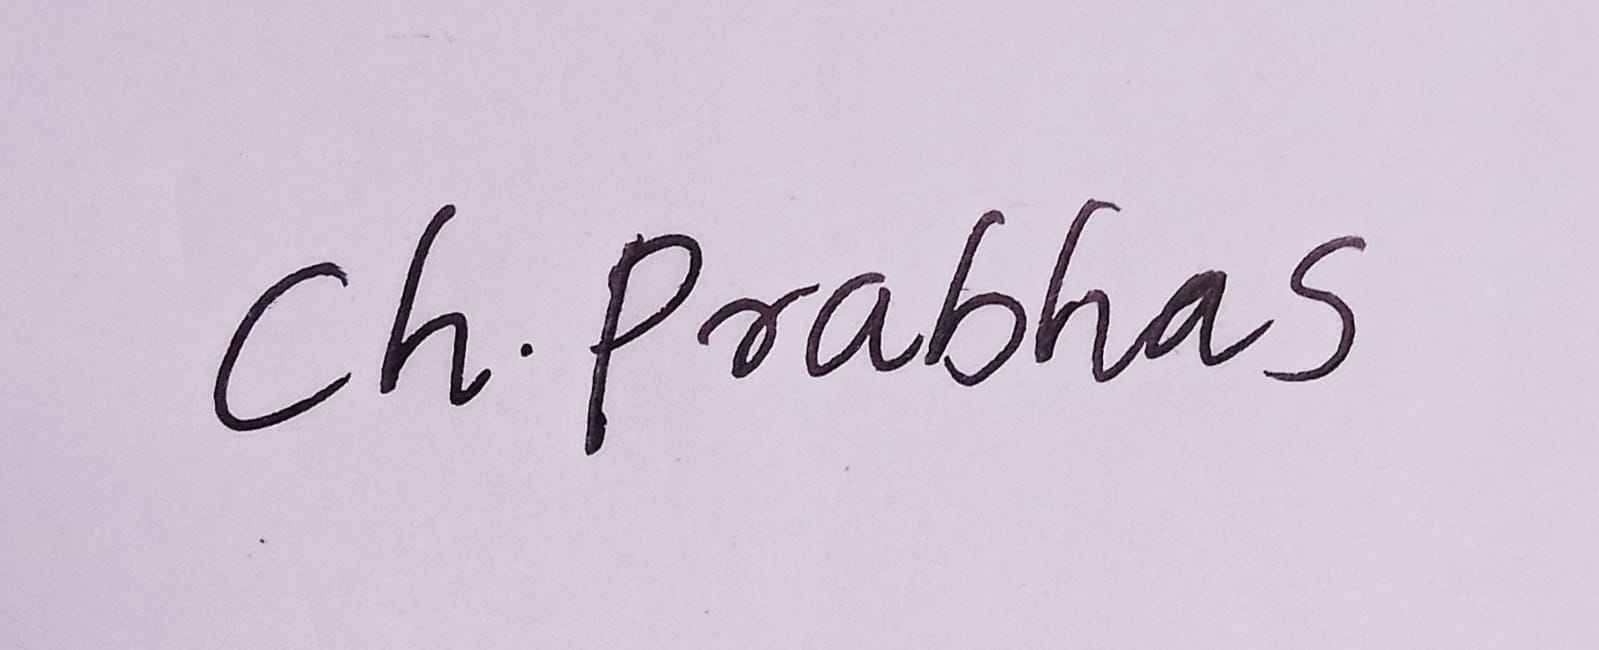 Ch. Prabhas